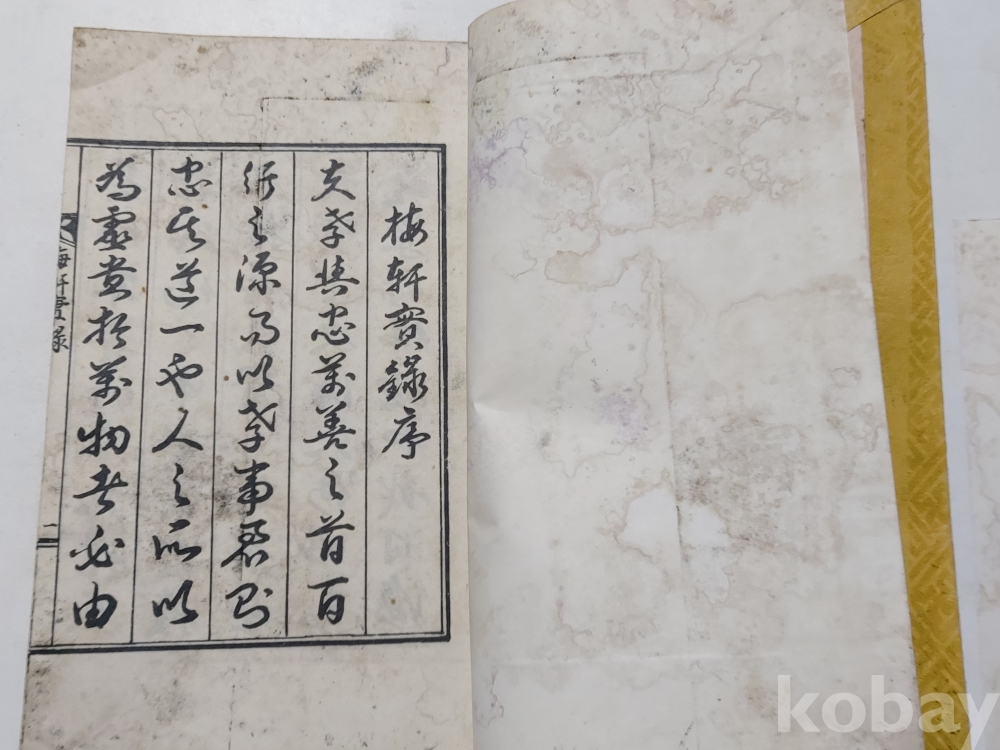 梅軒實錄序
夫孝與忠萬善之首百
行之源而以孝事君則
忠其道一也人之所以
為貴於萬物者必由
梅軒實錄
一
kobay